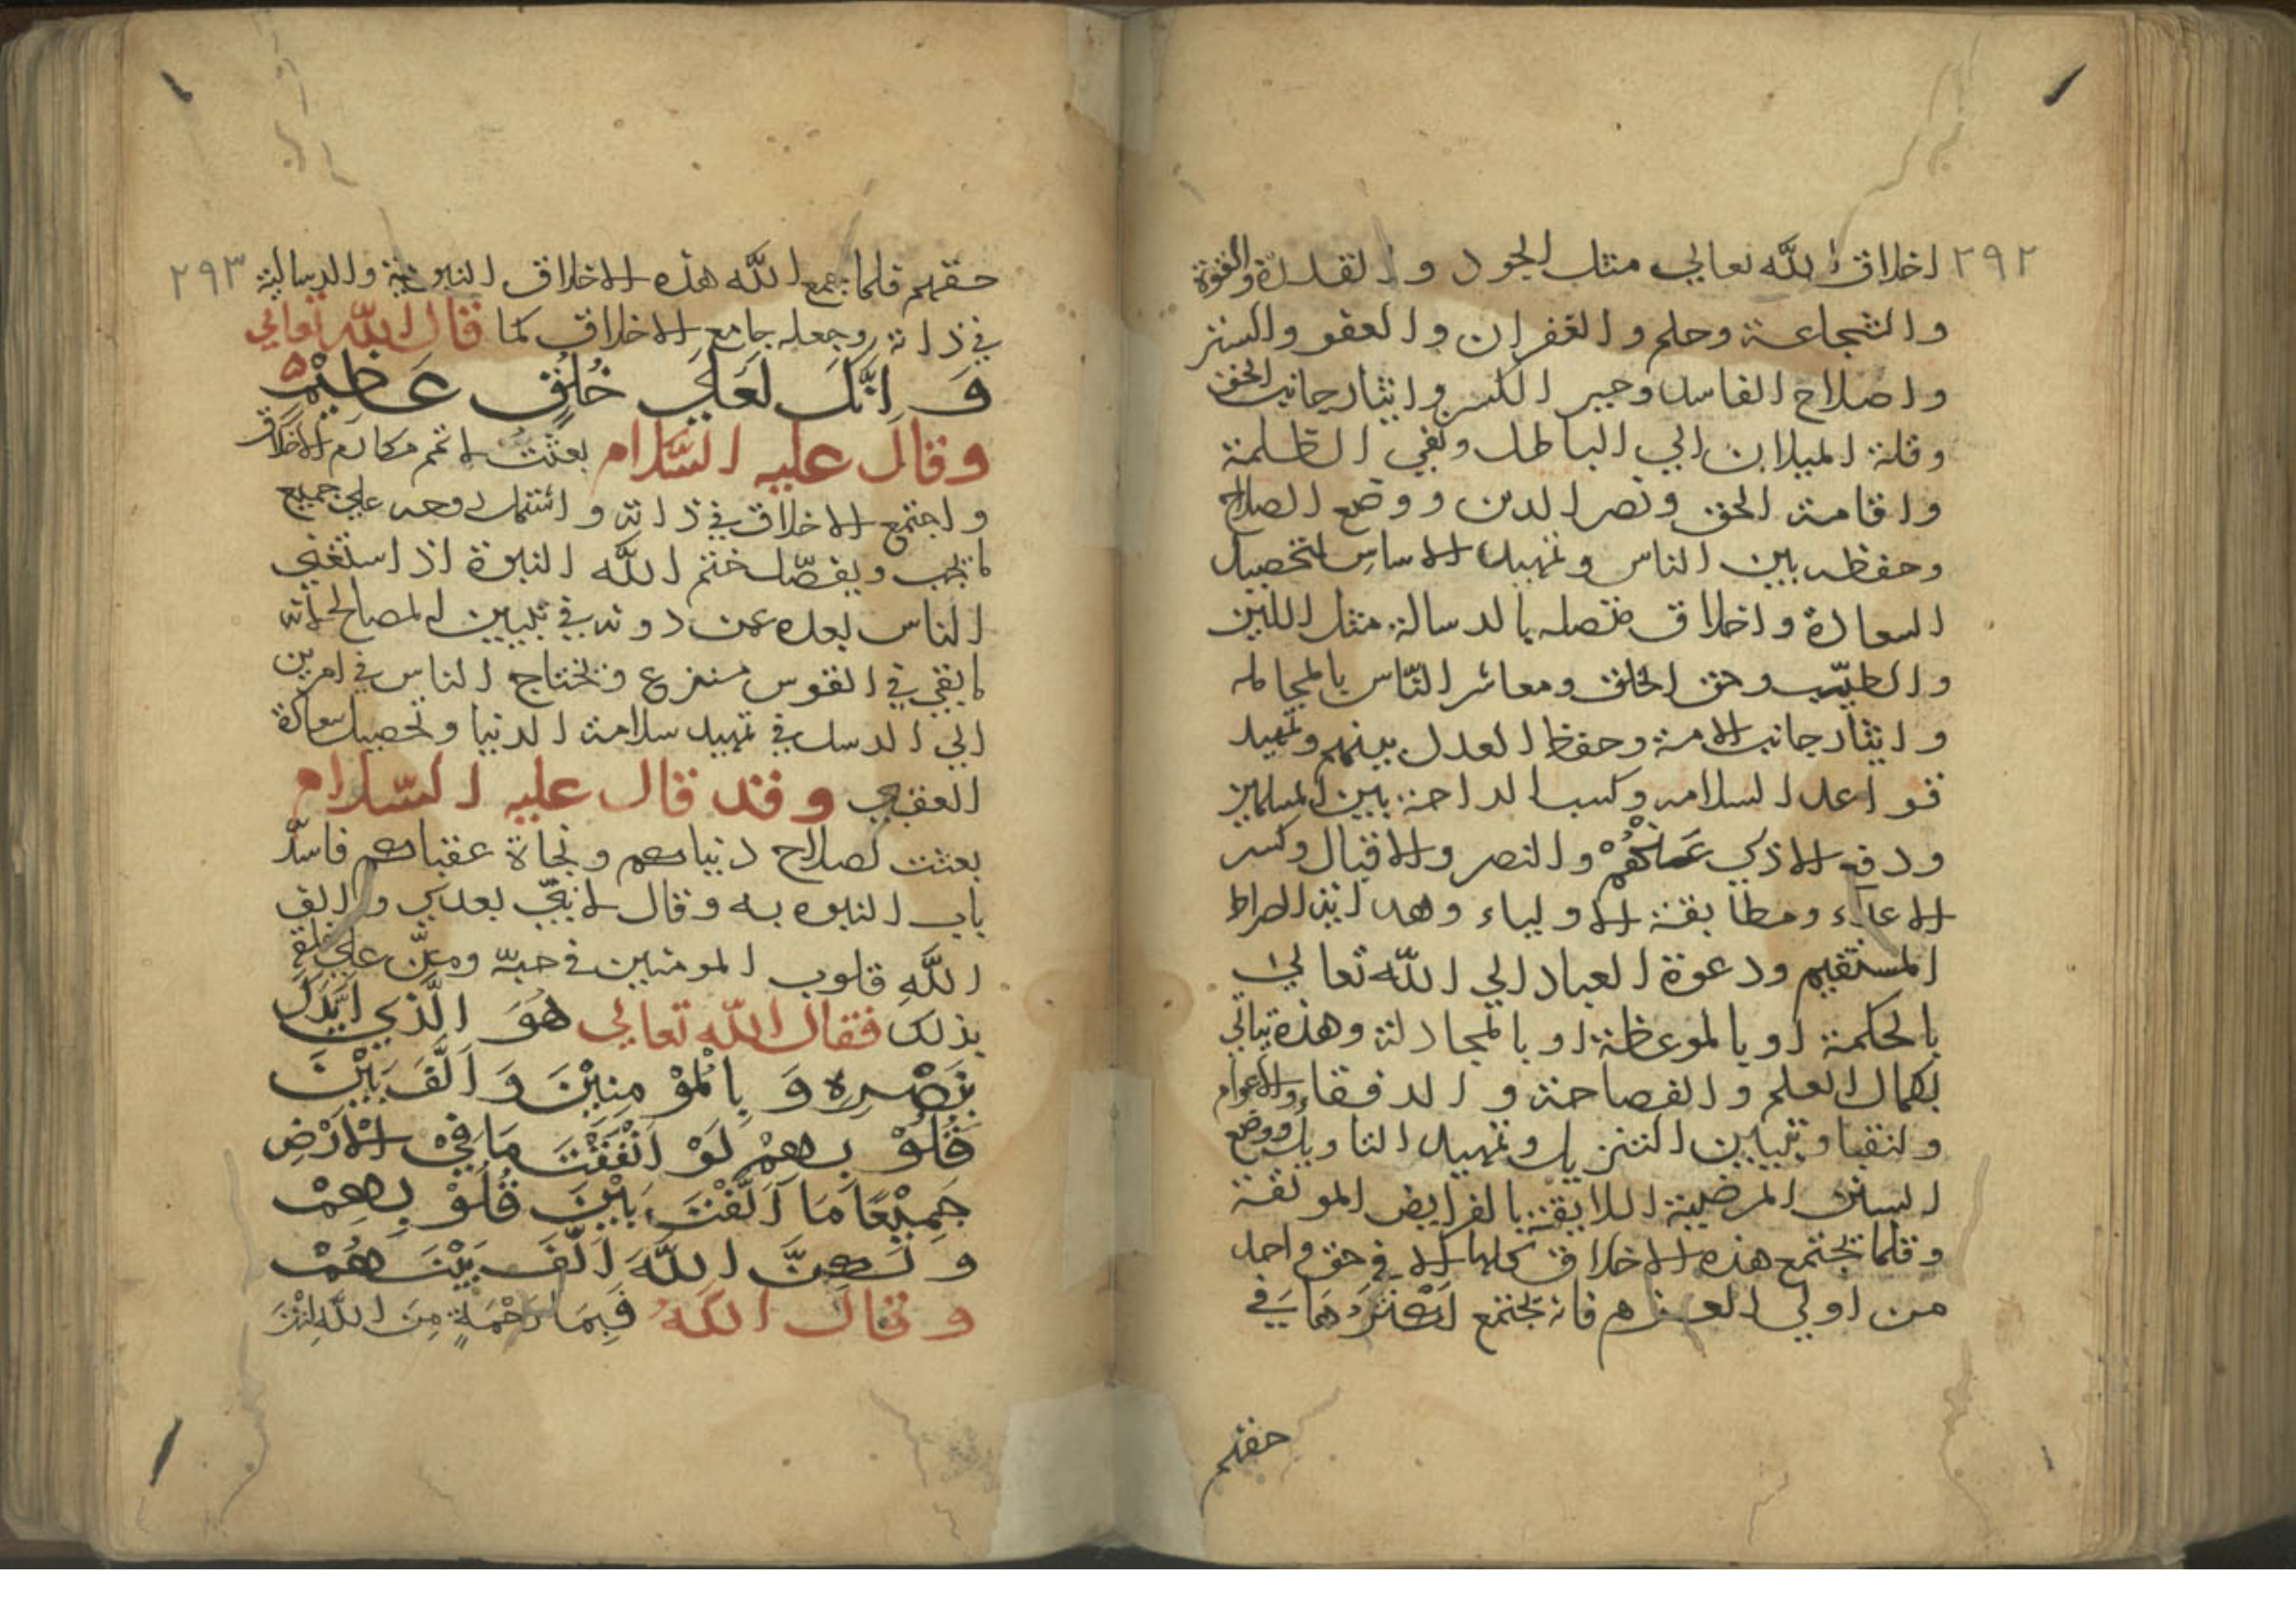 ٢٩٢
اخلاق الله تعالي مثل الجود والقدرة والقوة
والشجاعة وحلم والغفران والعفو والستر
واصلاح الفاسد وجبر الكسر وايثار جانب الحق
وقلة الميلان الي الباطل ونفي الظلمة
واقامة الحق ونصر الدين ووضع الصلاح
وحفظه بين الناس وتمهيد الاساس لتحصيل
السعادة واخلاق متصله بالرسالة مثل اللين
والطيب وحق الخلق ومعاشر الناس بالمجامله
وايثار جانب الامة وحفظ العدل بينهم وتمهيد
قواعد السلامه وكسب الراحة بين المسلمين
ودفع الاذي عنهم والنصر والاقبال وكسر
الاعداء ومطابقة الاولياء وهداية الصراط
المستقيم ودعوة العباد الي الله تعالي
بالحكمة او بالموعظة او بالمجادلة وهذه تباتي
بكمال العلم والفصاحة والرفقاء والاعوام
ولنقبا وتبيين التنزيل وتمهيد التاويل ووضع
السنن المرضية اللايقة بالفرايض الموثقة
وقلما تجتمع هذه الاخلاق كلها الا في حق واحد
من اولي العزم فانه تجتمع اكثرهما في
حقهم
٢٩٣
حقهم فلما جمع الله هذه الاخلاق النبوية والرسالية
في ذاته وجعله جامع الاخلاق كما قال الله تعالي
وَاِنَّكَ لَعَلَي خُلُقٍ عَظِيْمٍ
وقال عليه السّلام بعثت لاتمم مكارم الاخلاق
واجتمع الاخلاق في ذاته واشتمل روحه علي جميع
ما يجب ويفصّل ختم الله النبوة اذ استغني
الناس بعده عمن دونه في تبيين المصالح لانه
ما بقي في القوس منزع وتحتاج الناس في امرين
الي الرسل في تمهيد سلامة الدنيا وتحصيل سعادة
العقبي وقد قال عليه السّلام
بعثت لصلاح دنياهم ونجاة عقباهم فاسدّ
باب النبوه به وقال لا نبيّ بعدي والف
الله قلوب المومنين في حبّه ومنّ علي خلقه
بذلك فقال الله تعالي هُوَ الَّذي اَيَّدَكَ
بِنَصْرِهِ وَبِالْمُوْمِنِيْنَ وَاَلَّفَ بَيْنَ
قُلُوْبِهِمْ لَوْ اَنْفَقْتَ مَا فِيْ الْاَرْضِ
جَمِيْعًا مَا اَلَّفْتَ بَيْنَ قُلُوْبِهِمْ
وَلَكِنَّ اللهَ اَلَّفَ بَيْنَهُمْ
وقال الله فَبِمَا رَحْمَةٍ مِنَ اللهِ لِنْتَ